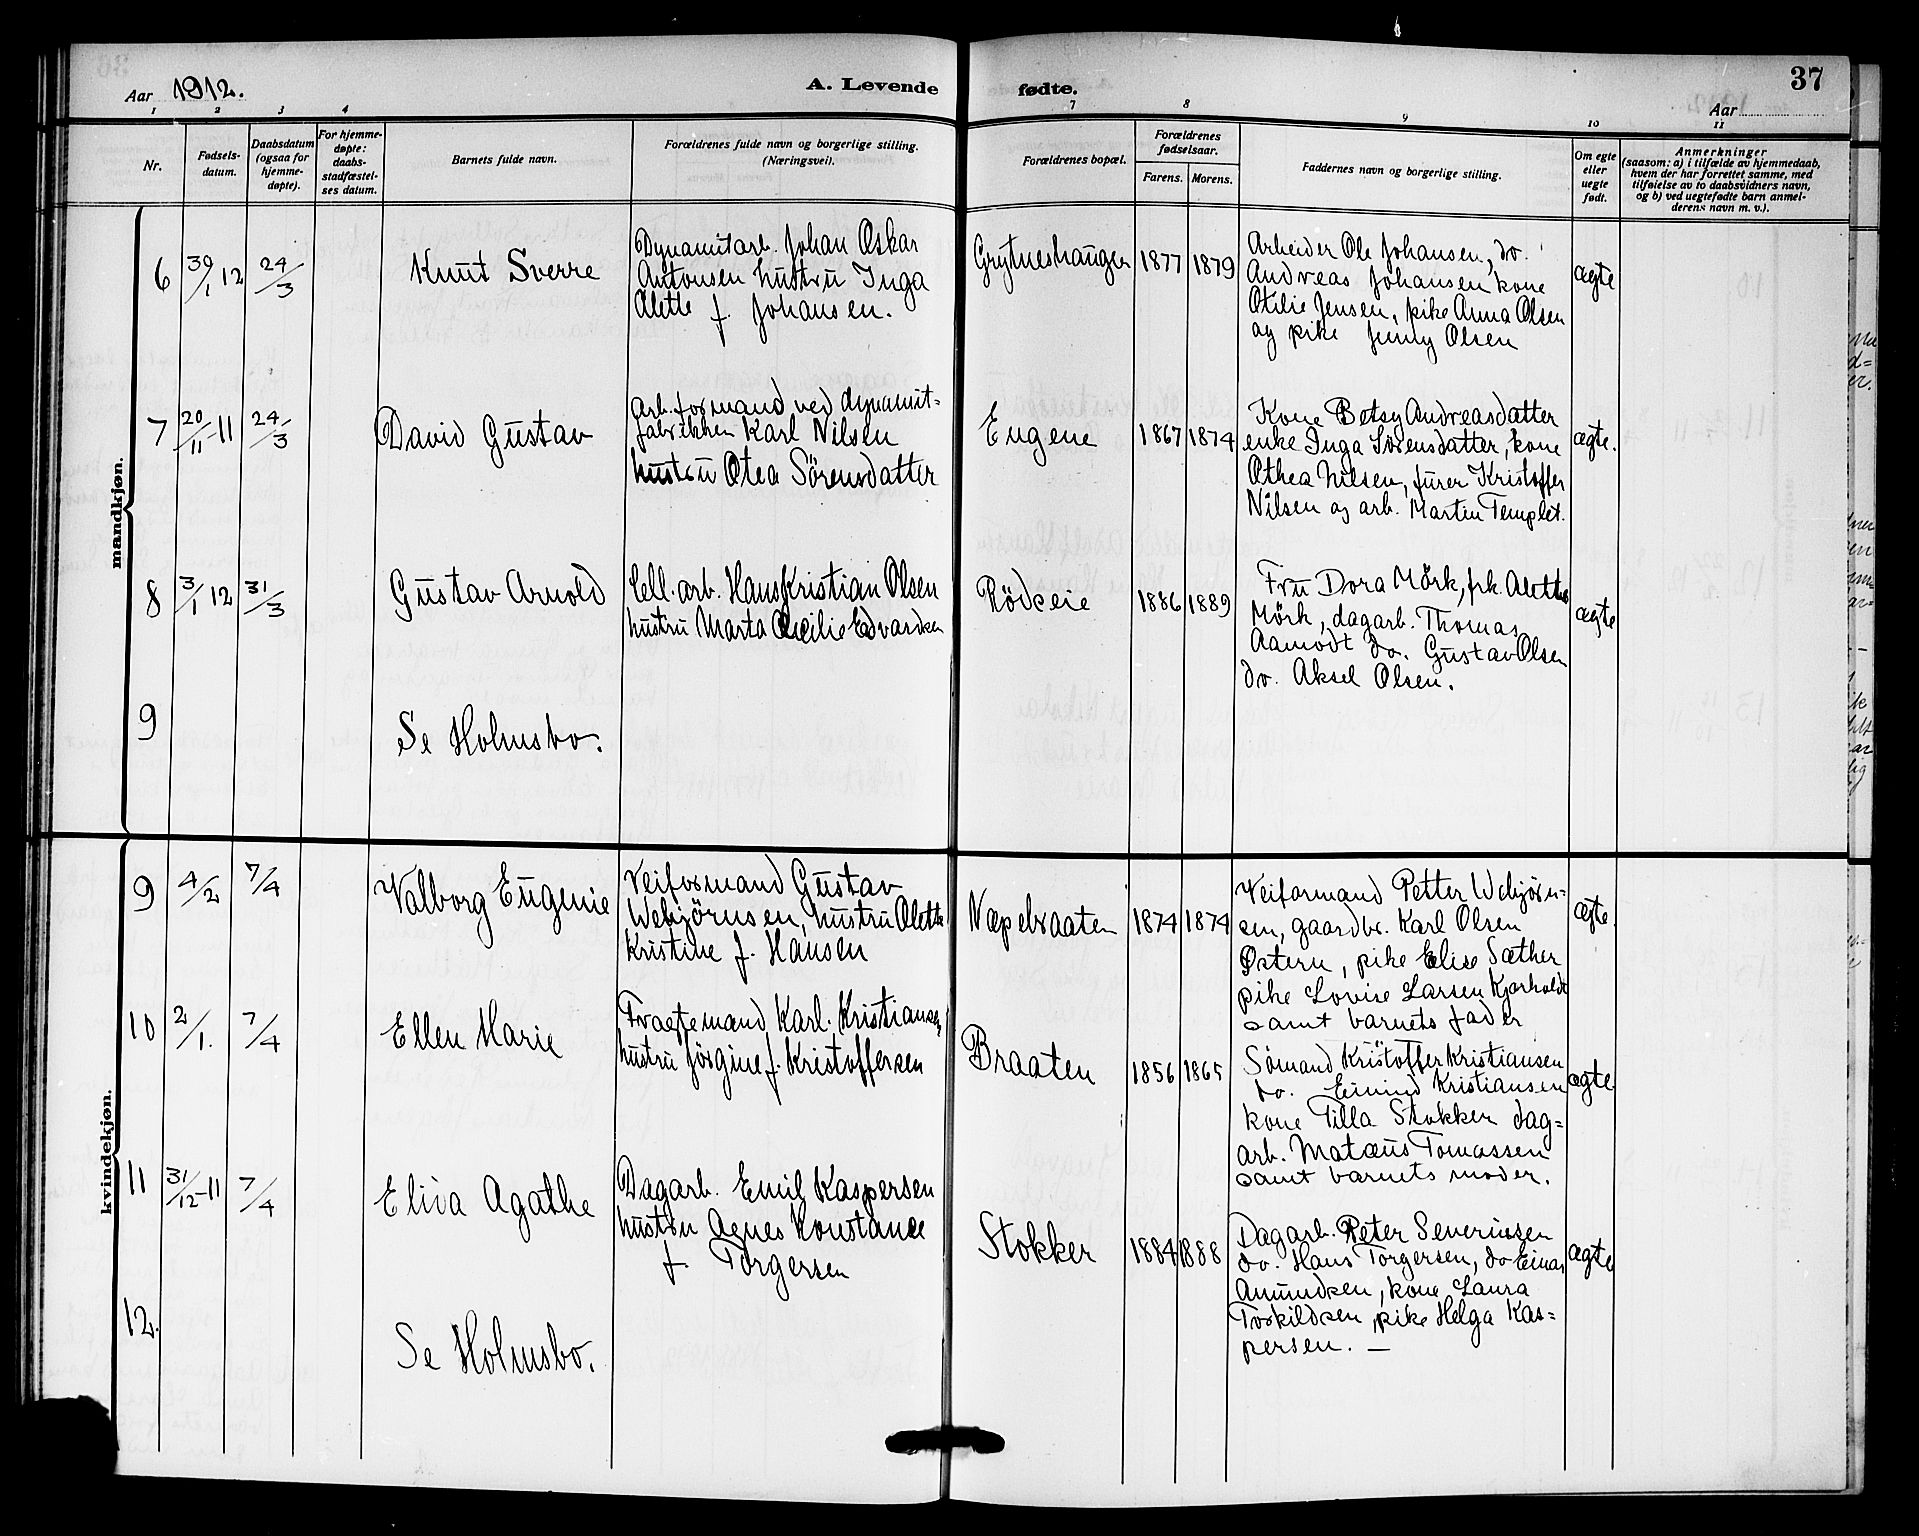 Aar 1912.
A. Levende fødte.
37
Aar
1 2 3 4 7 8 9 10 11
Nr.
Fødsels-
datum.
Daabsdatum
(ogsaa for
hjemme-
døpte).
For hjemme-
døpte:
daabs-
stadfæstel-
ses datum.
Barnets fulde navn.
Forældrenes fulde navn og borgerlige stilling.
(Næringsvei).
Forældrenes bopæl.
Forældrenes
fødselsaar.
Farens. Morens.
Faddernes navn og borgerlige stilling.
Om egte
eller
uegte
født.
Anmerkninger
(saasom: a) i tilfælde av hjemmedaab,
hvem der har forrettet samme, med
tilføielse av to daabsvidners navn,
og b) ved uegtefødte barn anmel-
derens navn m. v.).
mandkjøn.
6 30/1 12 24/3 Knut Sverre
Dynamitarb. Johan Oskar
Antonsen hustru Inga
Alette f. Johansen.
Grytneshaugen 1877 1879
Arbeider Ole Johansen, do.
Andreas Johansen kone
Otilie Jensen, pike Anna Olsen
og pike Jenny Olsen
ægte
7 20/11-11 24/3 David Gustav
Arb.formand ved dynamit=
fabrikken Karl Nilsen
hustru Otea Sörensdatter
Engene 1867 1874
Kone Betsy Andreasdatter
enke Inga Sørensdatter, kone
Othea Nilsen, furer Kristoffer
Nilsen og arb. Martin Templet.
ægte.
8 3/1 12 31/3 Gustav Arnold
Cell. arb. Hans Kristian Olsen
hustru Marta Cecilie Edvardsen
Rödseie 1886 1889
Fru Dora Mörk, frk. Alette
Mörk, dagarb. Thomas
Aamodt do. Gustav Olsen
do. Aksel Olsen.
ægte
9 Se Holmsbo.
kvindekjøn.
9 4/2 7/4 Valborg Eugenie
Veiformand Gustav
Webjörnsen, hustru Alette
Kristine f. Hansen
Næpebraaten 1874 1874
Veiformand Petter Webjørn-
sen, gaardbr. Karl Olsen
Østern, pike Elise Sæther
pike Lovise Larsen Kjørholdt
samt barnets fader
ægte.
10 2/1. 7/4 Ellen Marie
Fragtemand Karl Kristiansen
hustru Jörgine f. Kristoffersen
Braaten 1856 1865
Sømand Kristoffer Kristiansen
do. Eivind Kristiansen
kone Tilla Stokker dag=
arb. Matæus Tomassen
samt barnets moder.
ægte
11 31/12-11 7/4 Elida Agathe
Dagarb. Emil Kaspersen
hustru Agnes Konstance
f. Torgersen
Stokker 1884 1888
Dagarb. Peter Severinsen
do. Hans Torgersen, do Einar
Amundsen, kone Laura
Torkildsen, pike Helga Kas=
persen. —
ægte
12. Se Holmsbo.